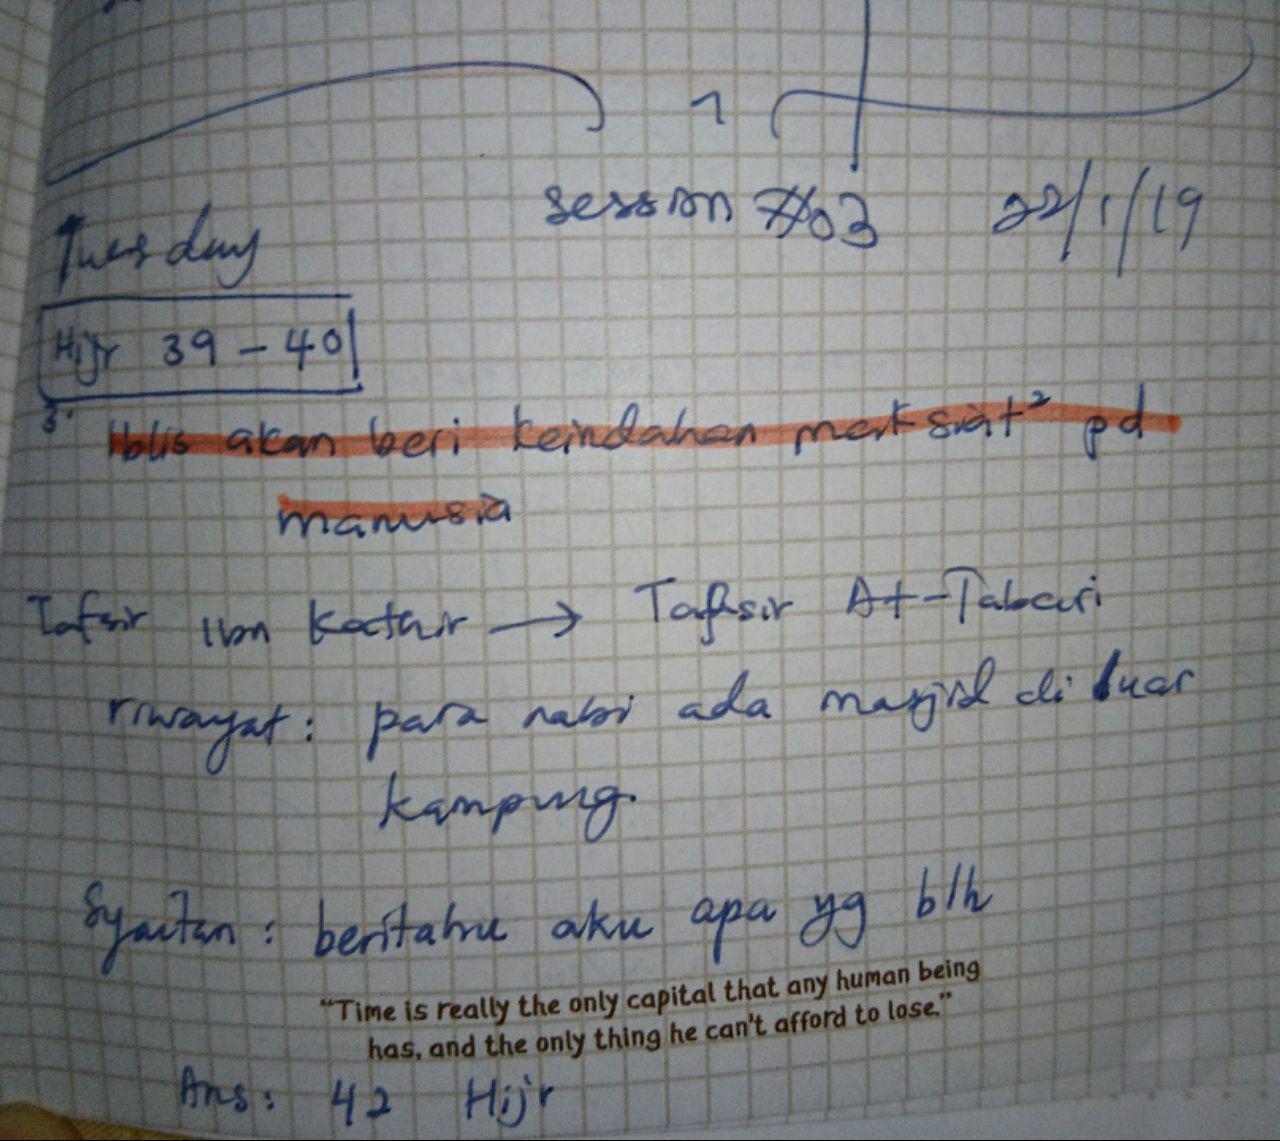 session #03 22/1/19
Tuesday
Hijr 39 - 40
3. Iblis akan beri keindahan maksiat² pd
manusia
Tafsir Ibn Kathir → Tafsir At-Tabari
riwayat : para nabi ada masjid di luar
kampung
Syaitan : beritahu aku apa yg blh
"Time is really the only capital that any human being
has, and the only thing he can't afford to lose."
Ans : 42 Hijr